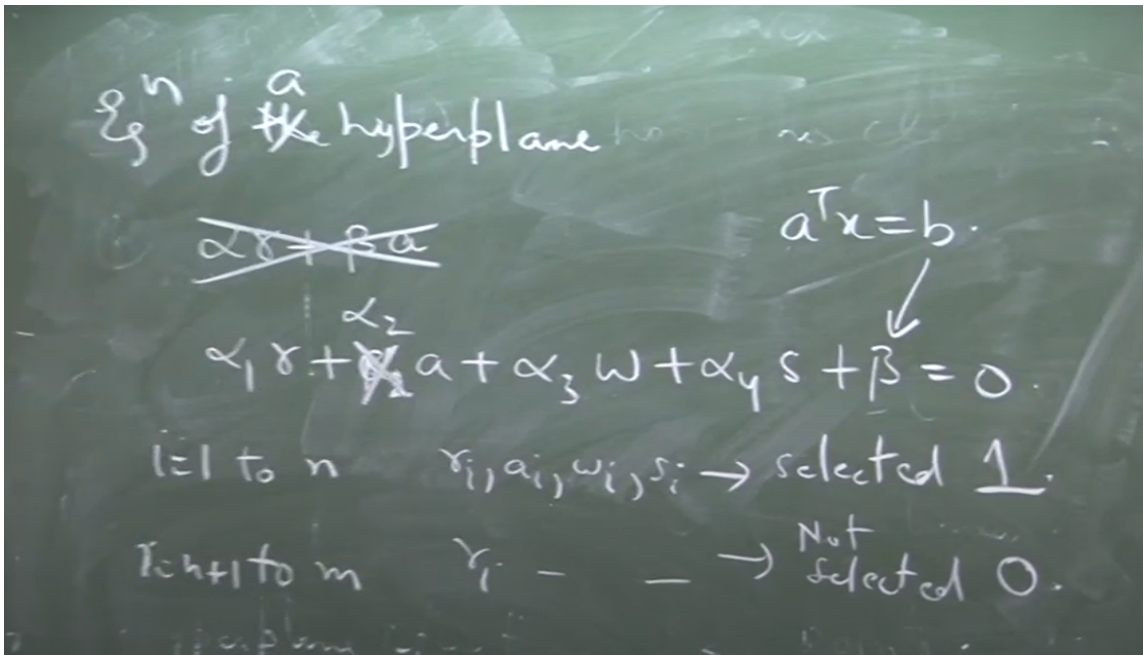 Eqⁿ of a hyperplane
αr + βa
aᵀx = b.
α₁r + α₂a + α₃w + α₄s + β = 0.
i=1 to n rᵢ, aᵢ, wᵢ, sᵢ → selected 1.
i=n+1 to m rᵢ – – → Not selected 0.